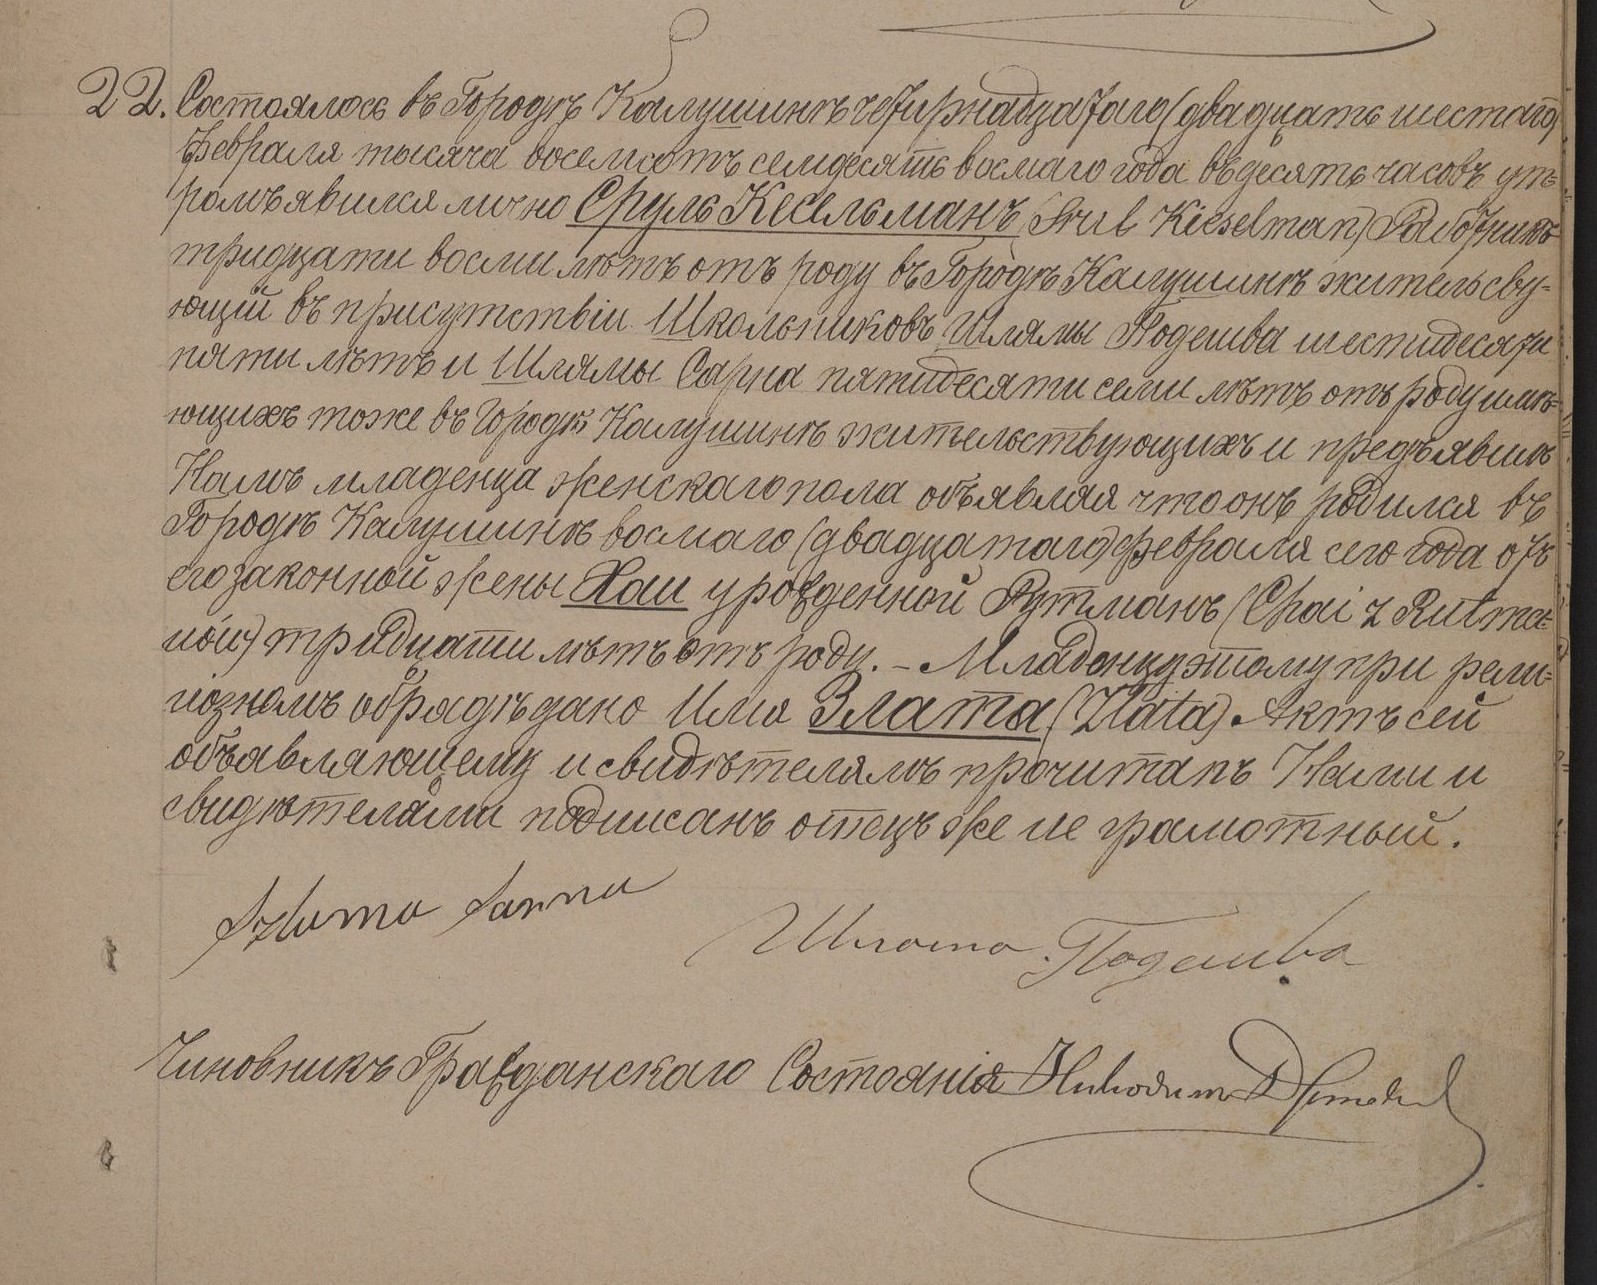 22. Состоялось въ Городкѣ Калушинѣ четырнадцатаго (двадцать шестаго)
Февраля тысяча восемсотъ семдесятъ восмаго года въ десять часовъ ут-
ромъ явился лично Сруль Кесельманъ (Srul Kieselman) Работникъ
тридцати восми лѣтъ отъ роду въ Городкѣ Калушинѣ жительсву-
ющій въ присутствіи Школьниковъ Шлямы Подешва шестидесяти
пяти лѣтъ и Шлямы Сарна пятидесяти семи лѣтъ отъ роду имѣ-
ющихъ тоже въ Городкѣ Калушинѣ жительствующихъ и предъявилъ
Намъ младенца женскаго пола объявляя что онъ родился въ
Городкѣ Калушинѣ восмаго (двадцатаго) февраля сего года отъ
его законной жены Хаи урожденной Рутманъ (Chai z Rutma-
nów) тридцати лѣтъ отъ роду. – Младенцу этому при рели-
гіозномъ обрядѣ дано Имя Злата (Złata) Актъ сей
объявляющему и свидѣтелямъ прочитанъ Нами и
свидѣтелями подписанъ отецъ же не грамотный.
Szlama Sarna
Шлома Подешва
Чиновникъ Гражданскаго Состоянія Никодимъ